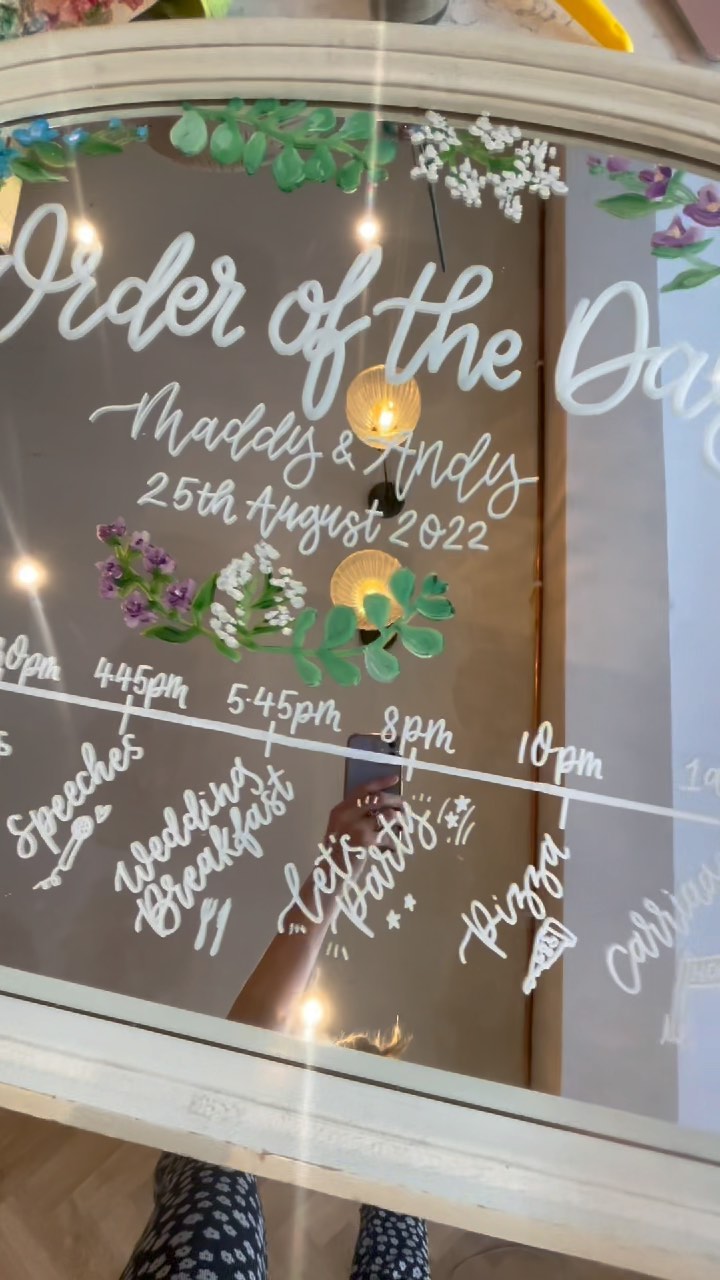 Order of the Day
Maddy & Andy
25th August 2022
30pm 4:45pm 5·45pm 8pm 10pm 1a
s Speeches Wedding Breakfast Let's Party Pizza Carriag